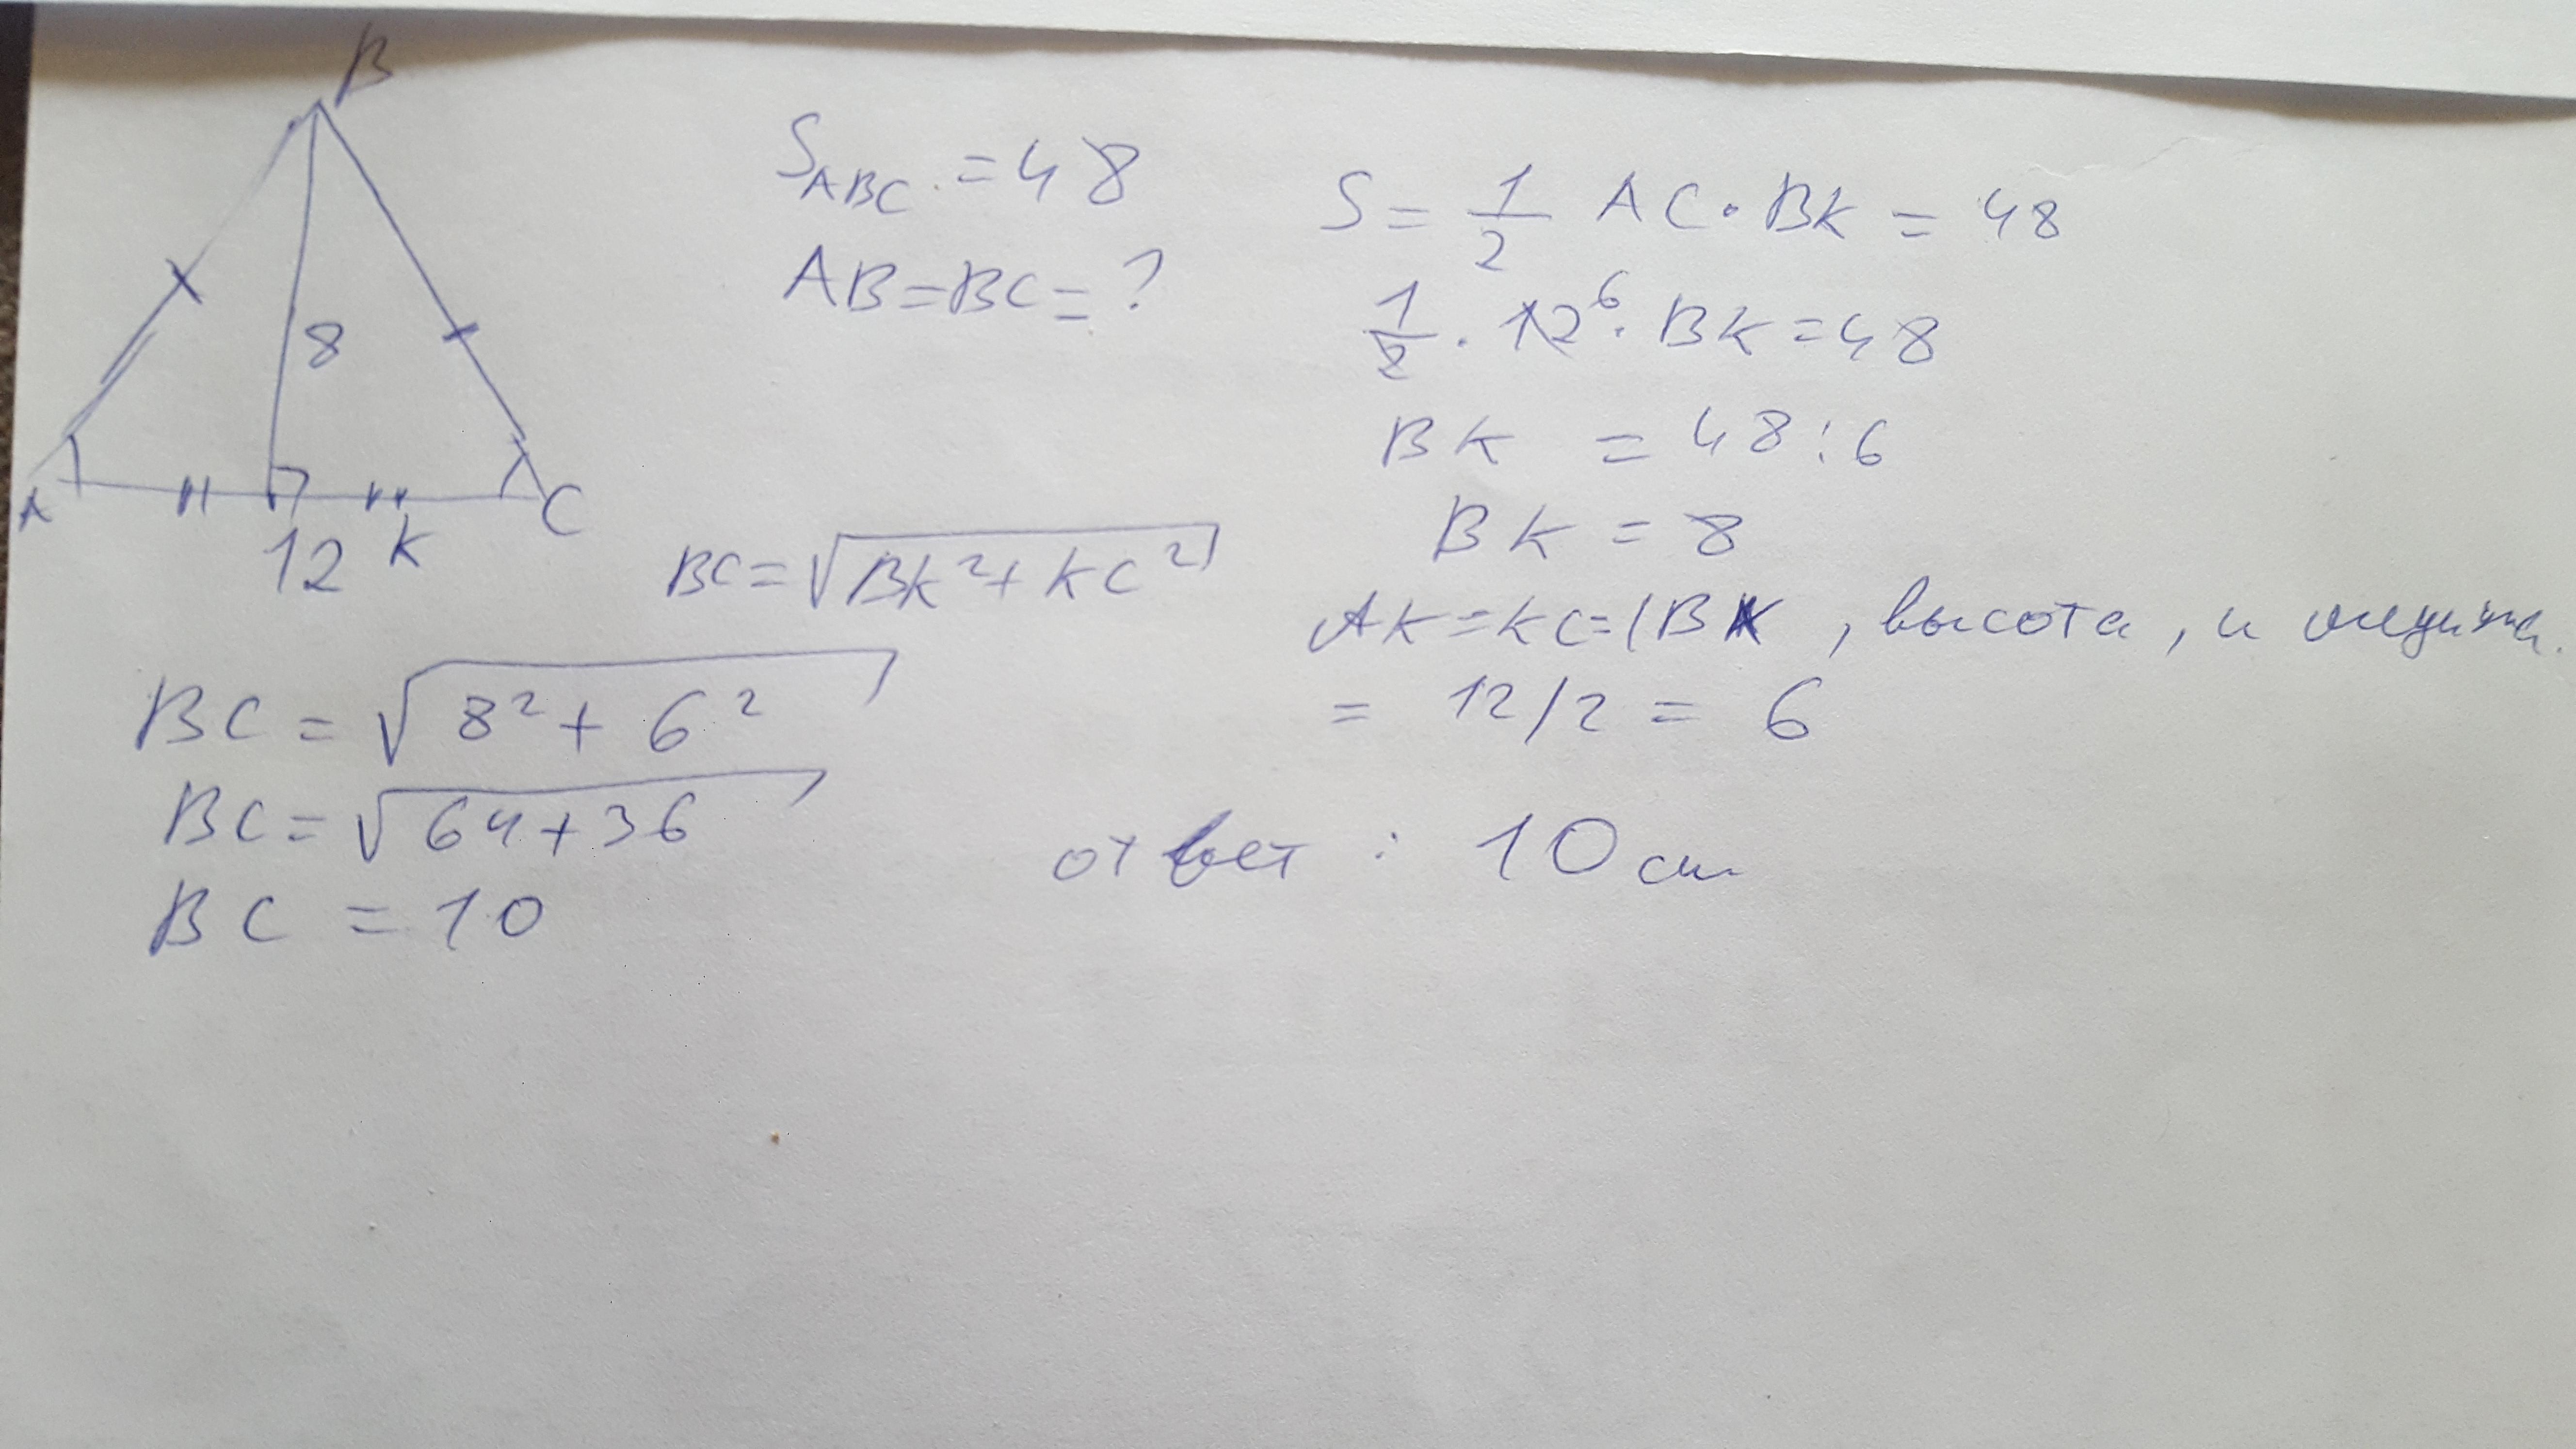 B
8
A
C
12 K
S ABC = 48
AB = BC = ?
S = 1/2 AC · BK = 48
1/2 · 12 6 · BK = 48
BK = 48 : 6
BK = 8
AK = KC = (BK, высота, и медиана.
= 12/2 = 6
BC = √BK² + KC²
BC = √8² + 6²
BC = √64 + 36
BC = 10
ответ : 10 см